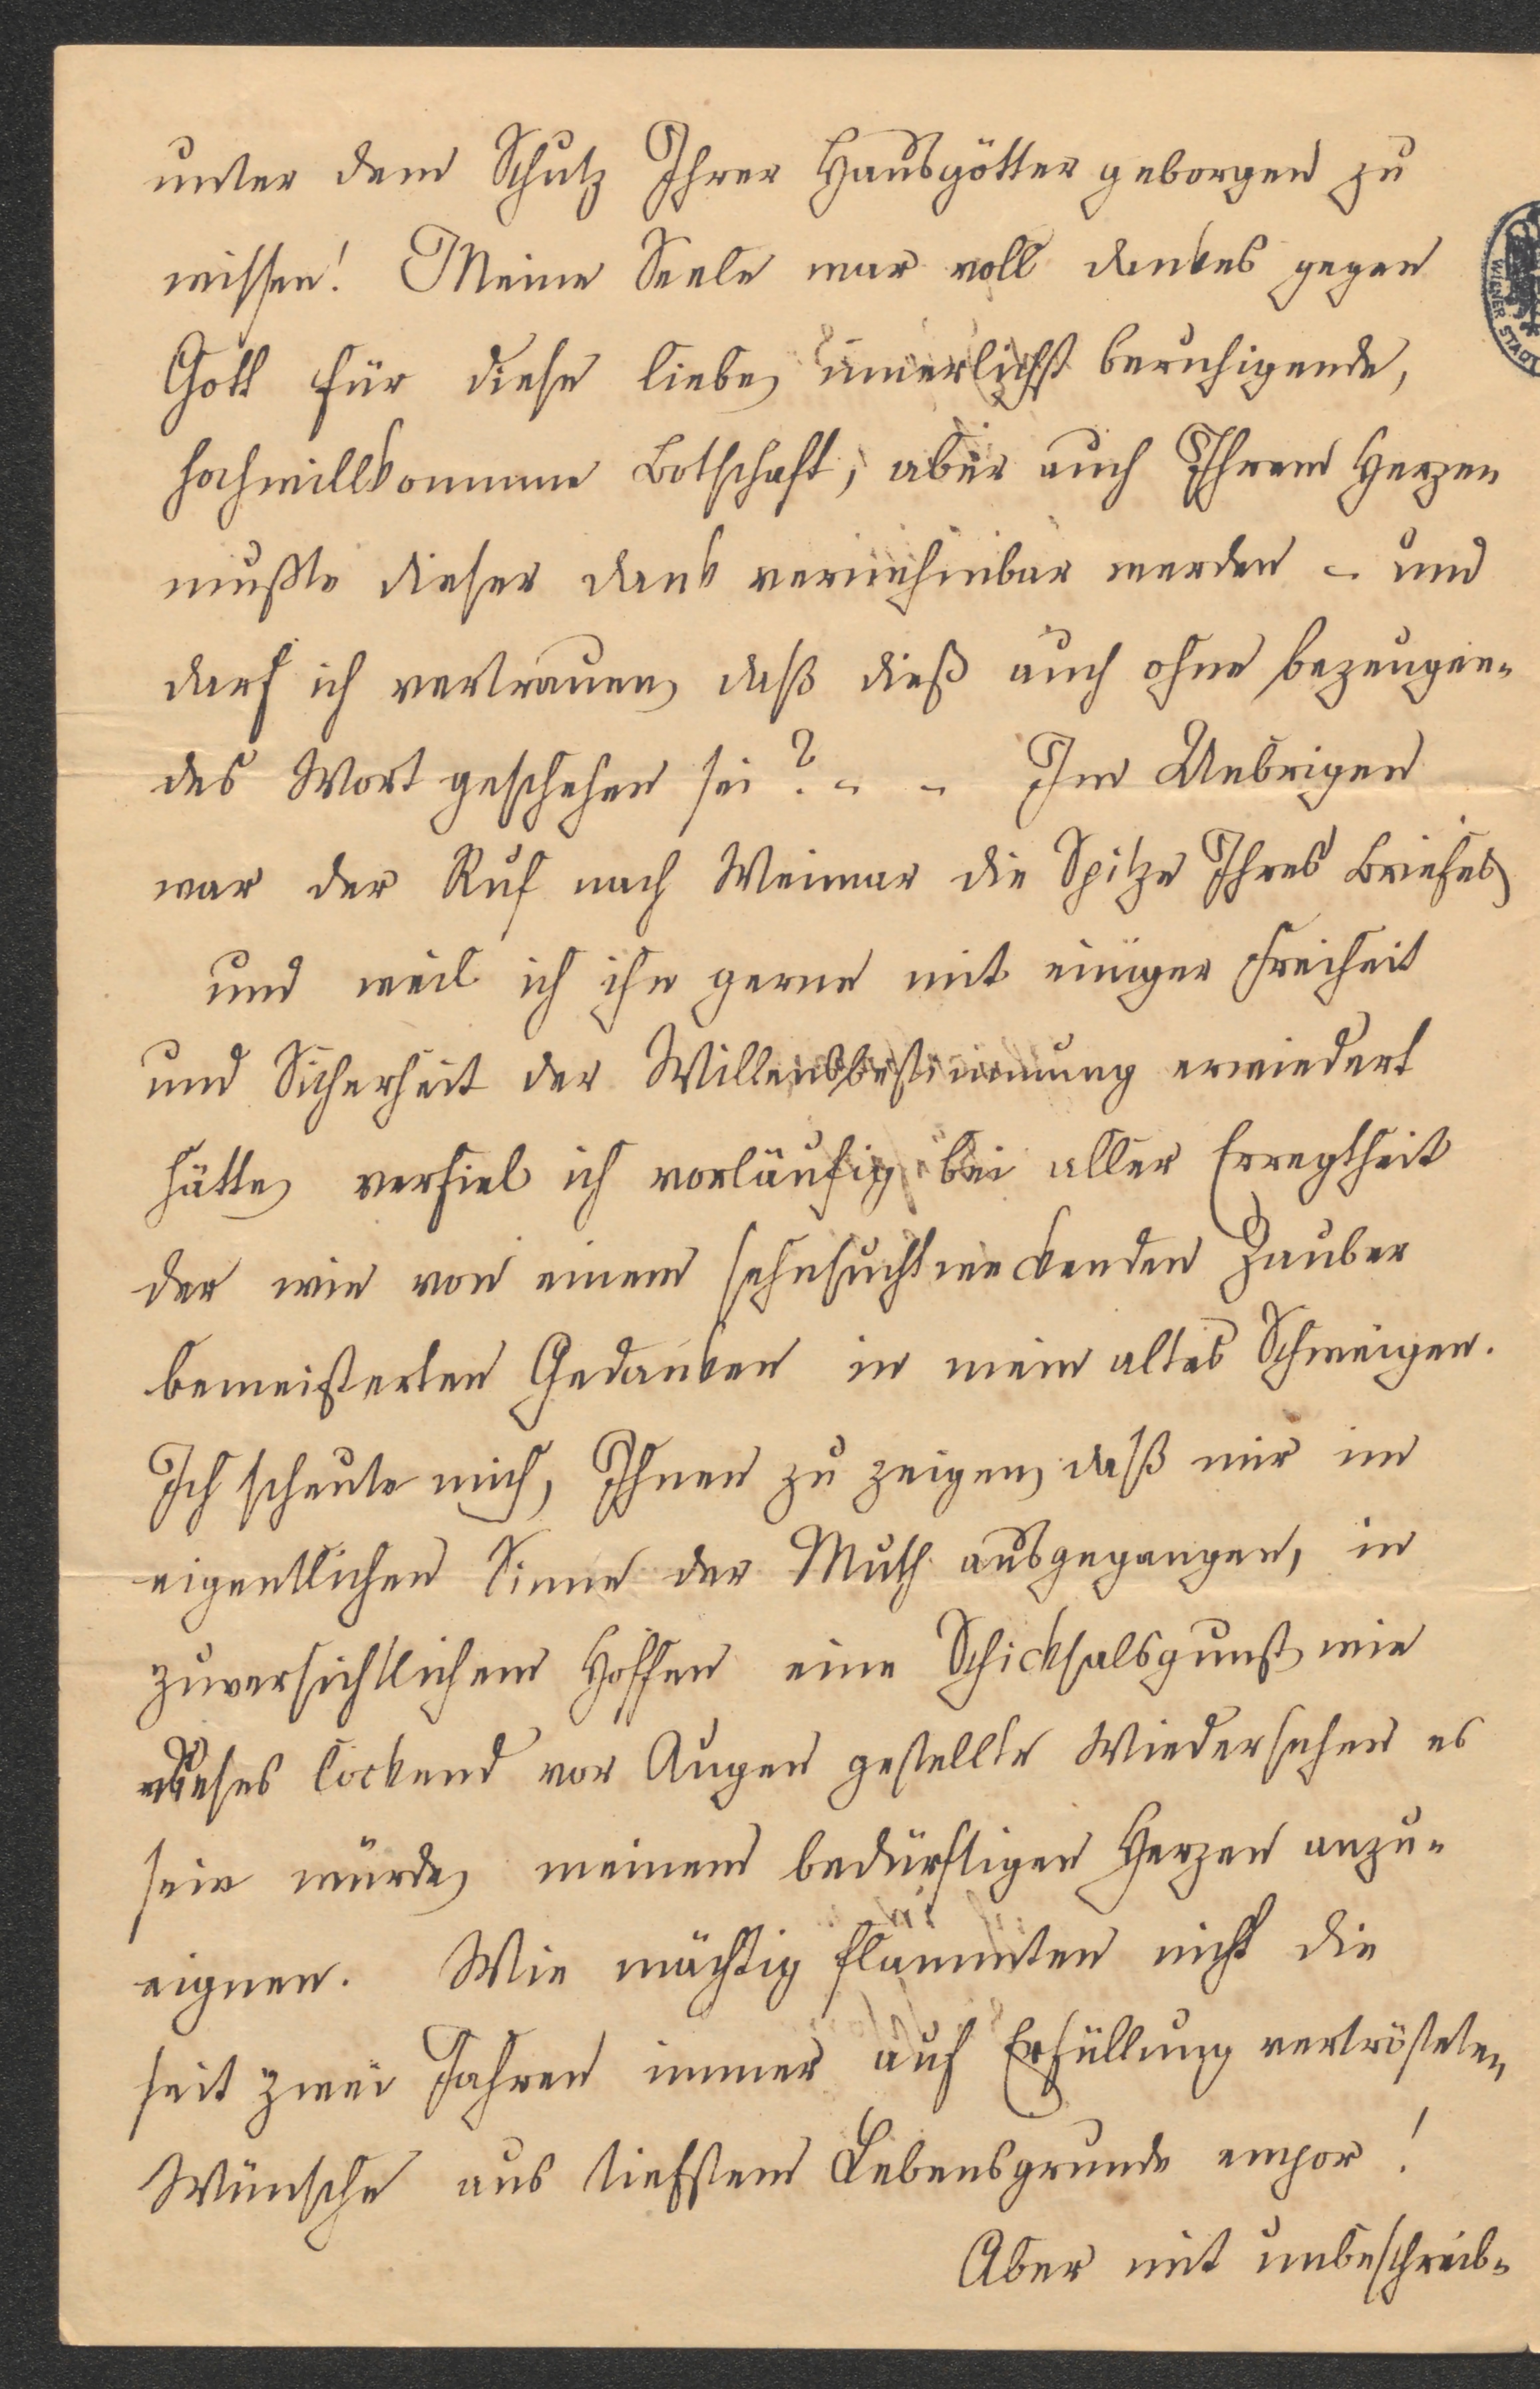 unter dem Schutz Ihrer Hausgötter geborgen zu
wissen! Meine Seele war voll Dankes gegen
Gott für diese liebe, innerlichst beruhigende,
hochwillkommene Botschaft; aber auch Ihrem Herzen
mußte dieser Dank vernehmbar werden – und
darf ich vertrauen, daß dieß auch ohne bezeugen-
des Wort geschehen sei? – – Im Uebrigen
war der Ruf nach Weimar die Spitze Ihres Briefes,
und weil ich ihn gerne mit einiger Freiheit
und Sicherheit der Willensbestimmung erwiedert
hätte, verfiel ich vorläufig bei aller Erregtheit
der wie von einem sehnsuchtweckenden Zauber
bemeisterten Gedanken in mein altes Schweigen.
Ich scheute mich, Ihnen zu zeigen, daß mir im
eigentlichen Sinne der Muth ausgegangen, in
zuversichtlichem Hoffen eine Schicksalsgunst, wie
dieses lockend vor Augen gestellte Wiedersehen es
sein würde, meinem bedürftigen Herzen anzu-
eignen. Wie mächtig flammten nicht die
seit zwei Jahren immer auf Erfüllung vertrösteten
Wünsche aus tiefstem Lebensgrunde empor!
Aber mit unbeschreib-
WIENER STADT